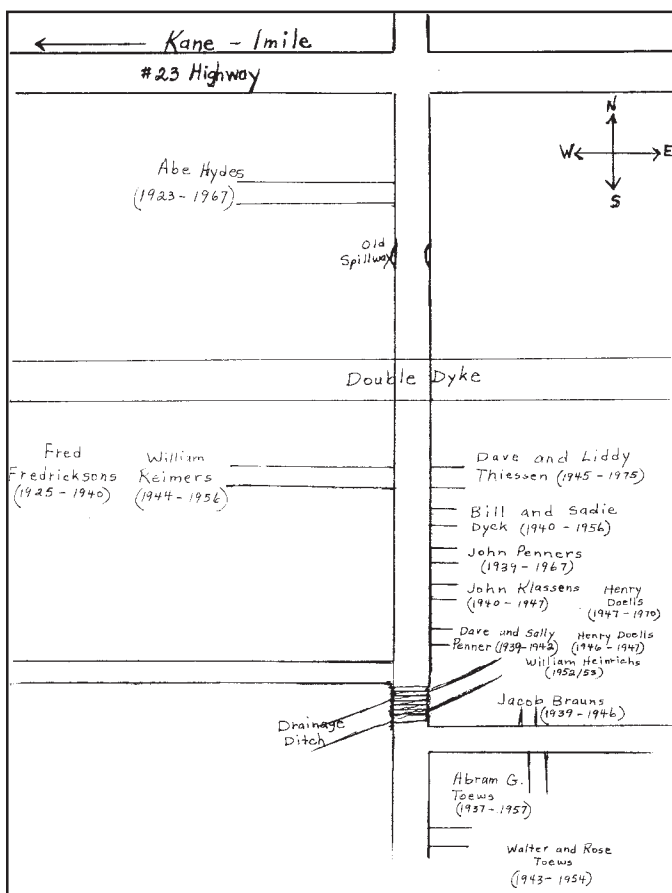 Kane - 1mile
#23 Highway
N
W E
S
Abe Hydes
(1923 - 1967)
Old
Spillway
Double Dyke
Fred
Fredricksons
(1925 - 1940)
William
Reimers
(1944 - 1956)
Dave and Liddy
Thiessen (1945 - 1975)
Bill and Sadie
Dyck (1940 - 1956)
John Penners
(1939 - 1967)
John Klassens
(1940 - 1947)
Henry
Doells
(1947 - 1970)
Dave and Sally
Penner (1939 - 1942)
Henry Doells
(1946 - 1947)
William Heinrichs
(1952/53)
Jacob Brauns
(1939 - 1946)
Drainage
Ditch
Abram G.
Toews
(1937 - 1957)
Walter and Rose
Toews
(1943 - 1954)